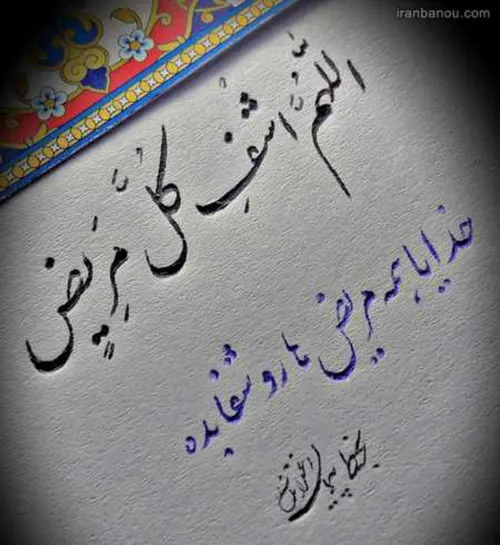 iranbanou.com
اللّهُمَّ اشْفِ كُلَّ مَرِيضٍ
خدایا همه مریض ها رو شفا بده